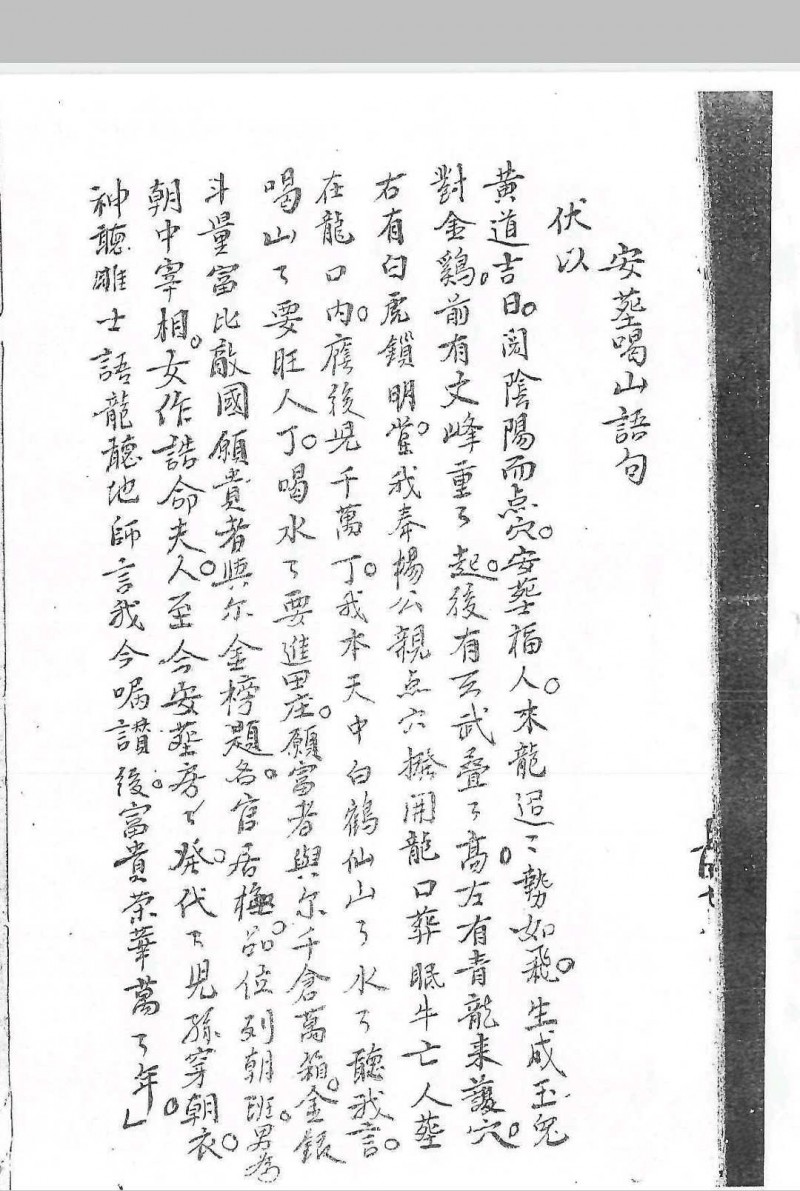 安塟喝山語句
伏以
黄道吉日。閲陰陽而点穴。安塟福人。来龍迢〻勢如飛。生成玉兔
對金鷄。前有文峰重〻起。後有玄武叠〻高。左有青龍来護穴。
右有白虎鎖明堂。我奉楊公親点穴撥開龍口葬眠牛亡人塟
在龍口内。應後児千萬丁。我本天中白鶴仙山〻水〻聽我言。
喝山〻要旺人丁。喝水〻要進田庄。願富者與尔千倉萬箱。金銀
斗量富比敵國願貴者與尔金榜題名。官居極品。位列朝班。男為
朝中宰相。女作誥命夫人。至今安塟房〻発。代〻児孫穿朝衣。
神聽雕士語龍聽地師言我今嘱讃後。富貴荣華萬〻年。